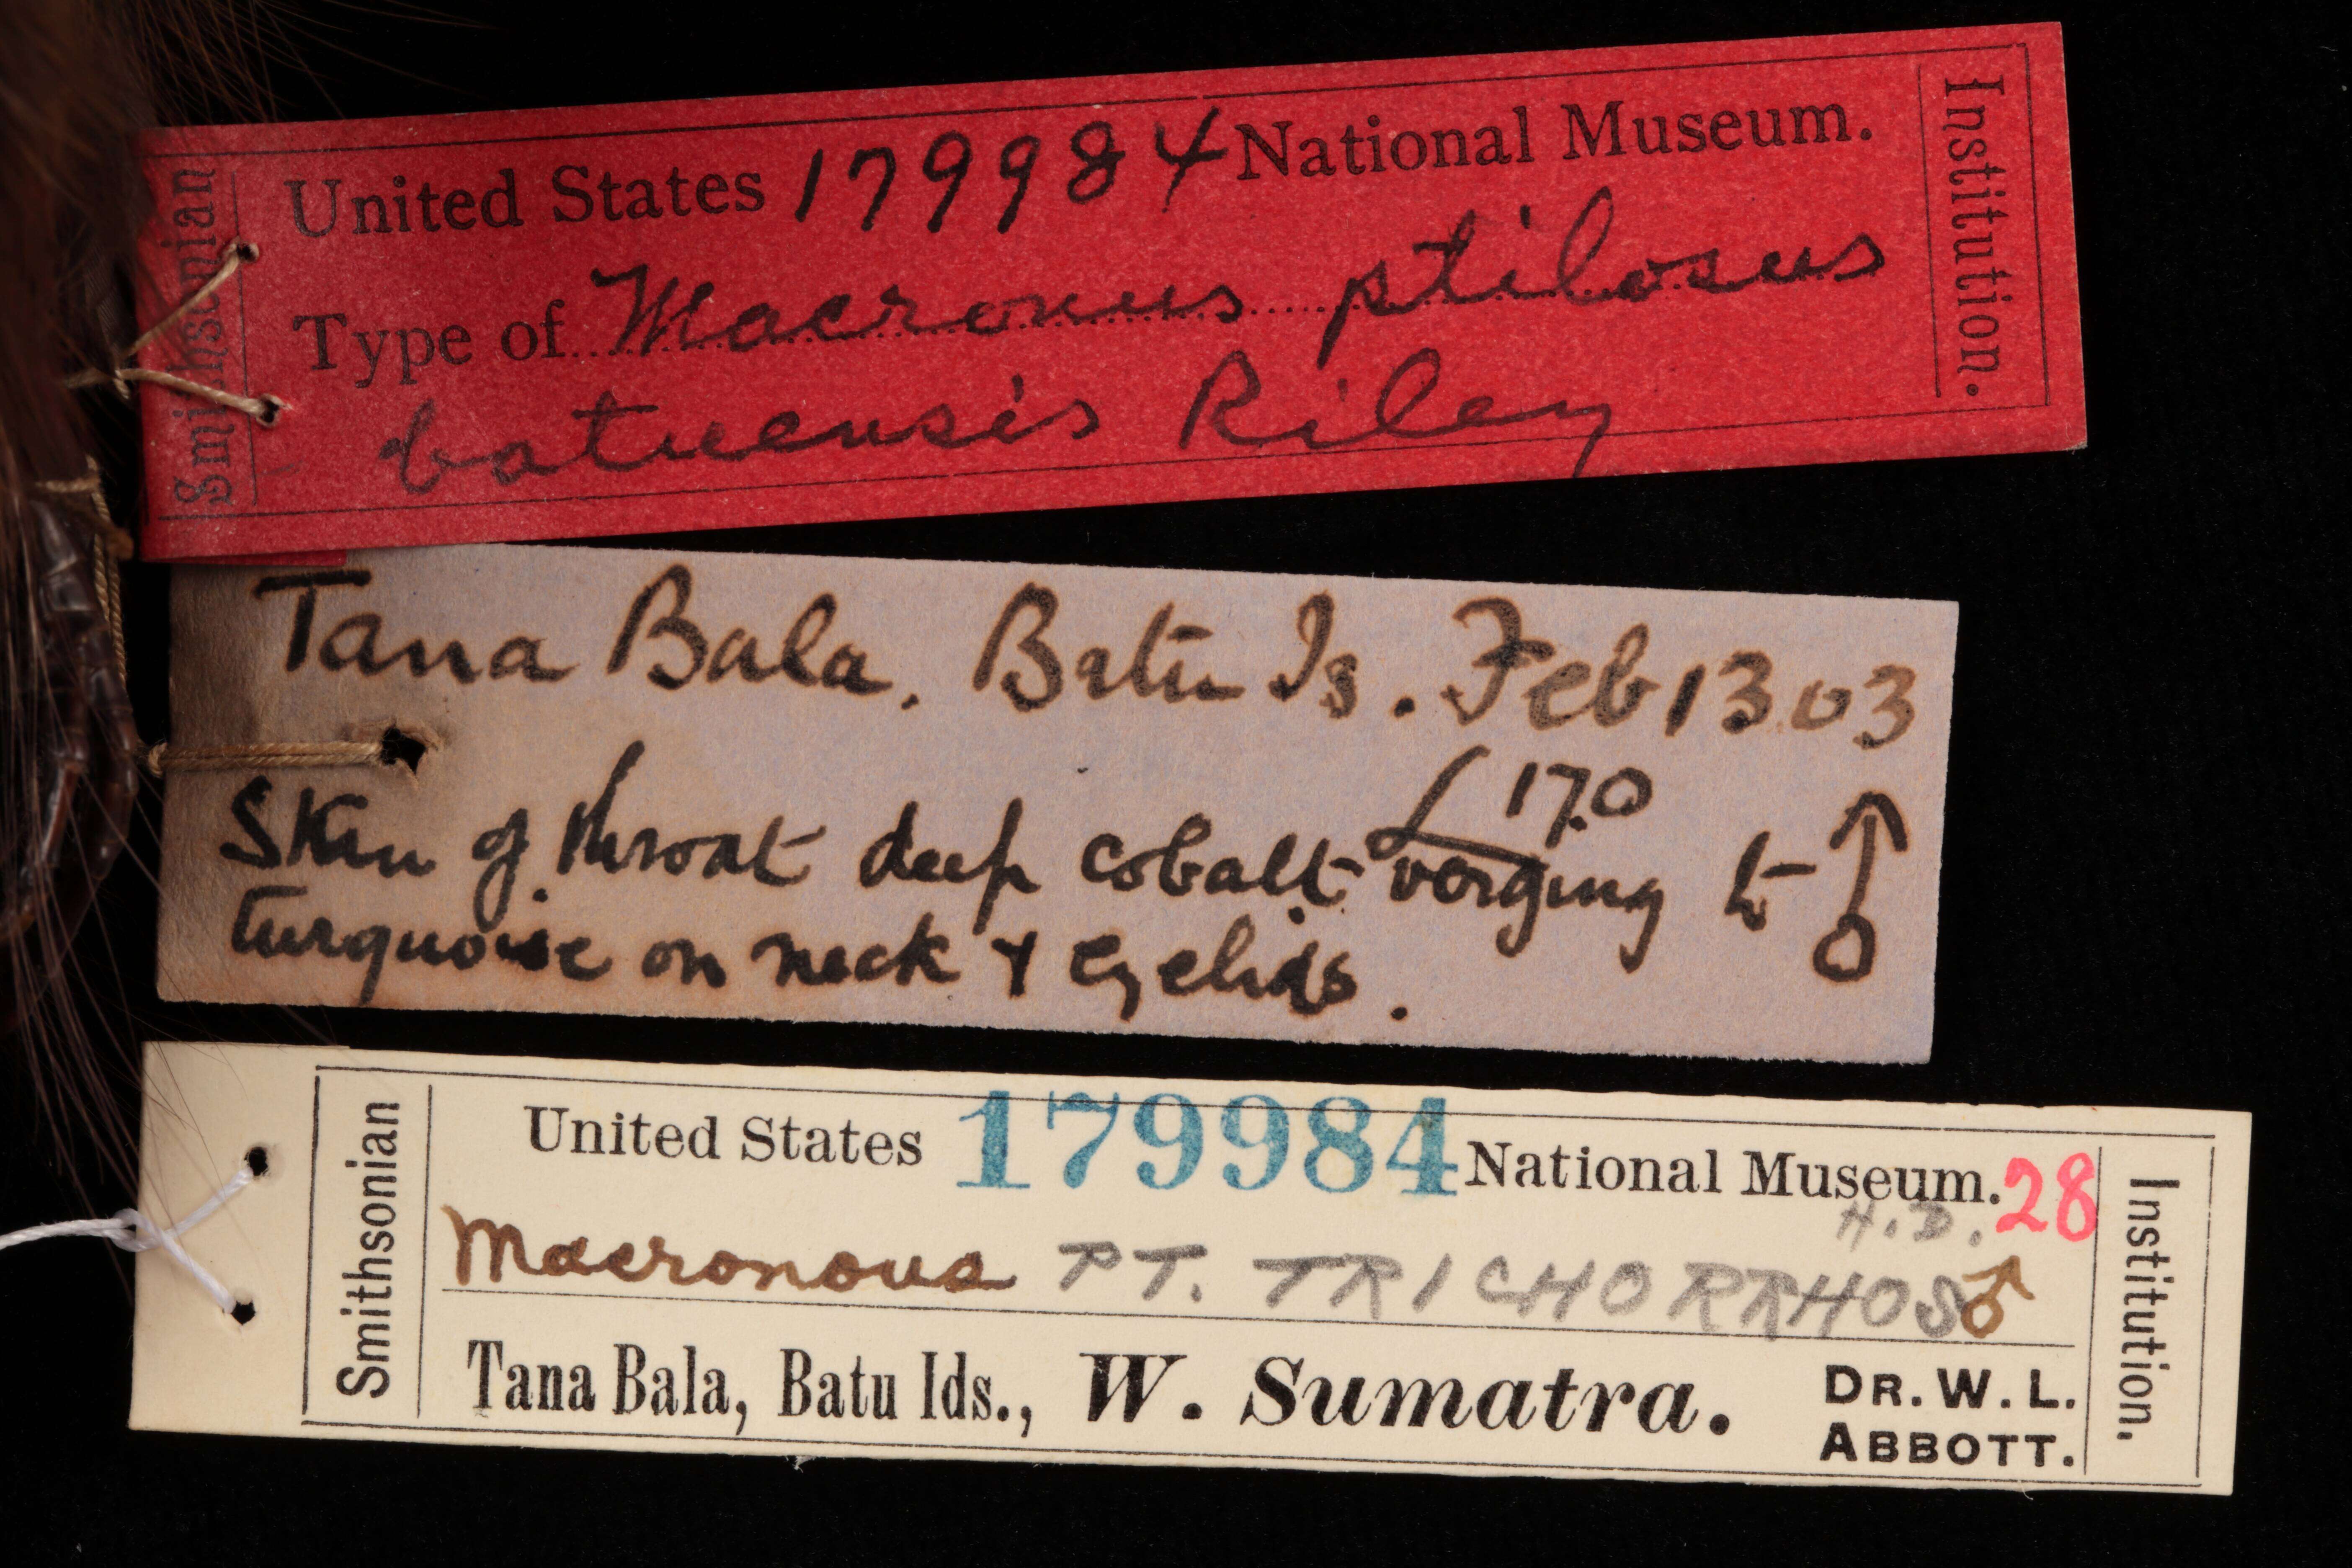 Smithsonian
United States 179984 National Museum.
Type of Macronus ptilosus
batuensis Riley
Institution.
Tana Bala. Batu Is. Feb 13 03
L 17.0
Skin of throat deep cobalt verging to ♂
turquoise on neck & Eyelids.
Smithsonian
United States 179984 National Museum. 28
H.D.
Macronous PT. TRICHORRHOS ♂
Tana Bala, Batu Ids., W. Sumatra.
DR. W. L.
ABBOTT.
Institution.